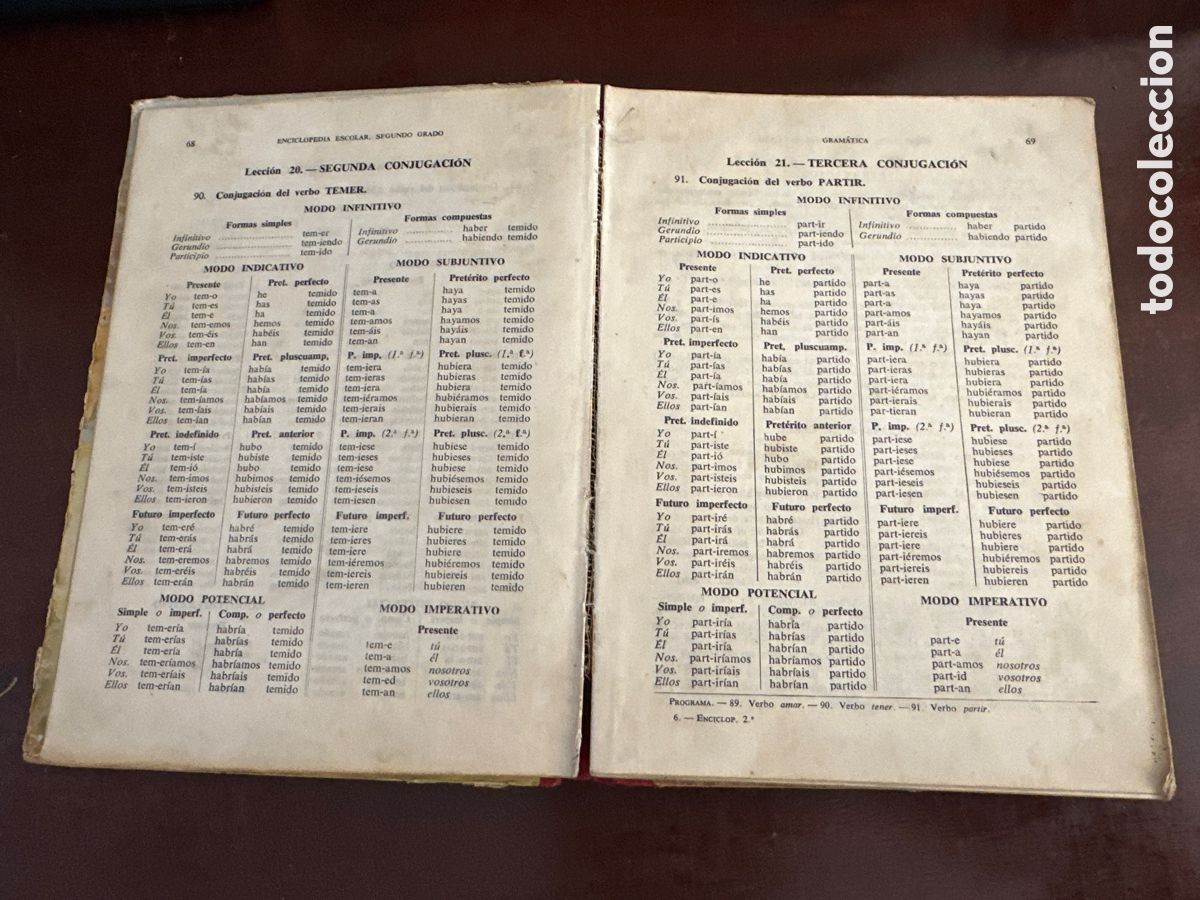 68 ENCICLOPEDIA ESCOLAR. SEGUNDO GRADO
Lección 20. — SEGUNDA CONJUGACIÓN
90. Conjugación del verbo TEMER.
MODO INFINITIVO
Formas simples Formas compuestas
Infinitivo .................... tem-er Infinitivo ............. haber temido
Gerundio .................... tem-iendo Gerundio ............. habiendo temido
Participio .................... tem-ido
MODO INDICATIVO MODO SUBJUNTIVO
Presente Pret. perfecto Presente Pretérito perfecto
Yo tem-o he temido tem-a haya temido
Tú tem-es has temido tem-as hayas temido
Él tem-e ha temido tem-a haya temido
Nos. tem-emos hemos temido tem-amos hayamos temido
Vos. tem-éis habéis temido tem-áis hayáis temido
Ellos tem-en han temido tem-an hayan temido
Pret. imperfecto Pret. pluscuamp. P. imp. (1.ª f.ª) Pret. plusc. (1.ª f.ª)
Yo tem-ía había temido tem-iera hubiera temido
Tú tem-ías habías temido tem-ieras hubieras temido
Él tem-ía había temido tem-iera hubiera temido
Nos. tem-íamos habíamos temido tem-iéramos hubiéramos temido
Vos. tem-íais habíais temido tem-ierais hubierais temido
Ellos tem-ían habían temido tem-ieran hubieran temido
Pret. indefinido Pret. anterior P. imp. (2.ª f.ª) Pret. plusc. (2.ª f.ª)
Yo tem-í hubo temido tem-iese hubiese temido
Tú tem-iste hubiste temido tem-ieses hubieses temido
Él tem-ió hubo temido tem-iese hubiese temido
Nos. tem-imos hubimos temido tem-iésemos hubiésemos temido
Vos. tem-isteis hubisteis temido tem-ieseis hubieseis temido
Ellos tem-ieron hubieron temido tem-iesen hubiesen temido
Futuro imperfecto Futuro perfecto Futuro imperf. Futuro perfecto
Yo tem-eré habré temido tem-iere hubiere temido
Tú tem-erás habrás temido tem-ieres hubieres temido
Él tem-erá habrá temido tem-iere hubiere temido
Nos. tem-eremos habremos temido tem-iéremos hubiéremos temido
Vos. tem-eréis habréis temido tem-iereis hubiereis temido
Ellos tem-erán habrán temido tem-ieren hubieren temido
MODO POTENCIAL MODO IMPERATIVO
Simple o imperf. Comp. o perfecto Presente
Yo tem-ería habría temido
Tú tem-erías habrías temido tem-e tú
Él tem-ería habría temido tem-a él
Nos. tem-eríamos habríamos temido tem-amos nosotros
Vos. tem-eríais habríais temido tem-ed vosotros
Ellos tem-erían habrían temido tem-an ellos
GRAMÁTICA 69
Lección 21. — TERCERA CONJUGACIÓN
91. Conjugación del verbo PARTIR.
MODO INFINITIVO
Formas simples Formas compuestas
Infinitivo .................... part-ir Infinitivo ............. haber partido
Gerundio .................... part-iendo Gerundio ............. habiendo partido
Participio .................... part-ido
MODO INDICATIVO MODO SUBJUNTIVO
Presente Pret. perfecto Presente Pretérito perfecto
Yo part-o he partido part-a haya partido
Tú part-es has partido part-as hayas partido
Él part-e ha partido part-a haya partido
Nos. part-imos hemos partido part-amos hayamos partido
Vos. part-ís habéis partido part-áis hayáis partido
Ellos part-en han partido part-an hayan partido
Pret. imperfecto Pret, pluscuamp. P. imp. (1.ª f.ª) Pret. plusc. (1.ª f.ª)
Yo part-ía había partido part-iera hubiera partido
Tú part-ías habías partido part-ieras hubieras partido
Él part-ía había partido part-iera hubiera partido
Nos. part-íamos habíamos partido part-iéramos hubiéramos partido
Vos. part-íais habíais partido part-ierais hubierais partido
Ellos part-ían habían partido par-tieran hubieran partido
Pret. indefinido Pretérito anterior P. imp. (2.ª f.ª) Pret. plusc. (2.ª f.ª)
Yo part-í hube partido part-iese hubiese partido
Tú part-iste hubiste partido part-ieses hubieses partido
Él part-ió hubo partido part-iese hubiese partido
Nos. part-imos hubimos partido part-iésemos hubiésemos partido
Vos. part-isteis hubisteis partido part-ieseis hubieseis partido
Ellos part-ieron hubieron partido part-iesen hubiesen partido
Futuro imperfecto Futuro perfecto Futuro imperf. Futuro perfecto
Yo part-iré habré partido part-iere hubiere partido
Tú part-irás habrás partido part-iereis hubieres partido
Él part-irá habrá partido part-iere hubiere partido
Nos. part-iremos habremos partido part-iéremos hubiéremos partido
Vos. part-iréis habréis partido part-iereis hubiereis partido
Ellos part-irán habrán partido part-ieren hubieren partido
MODO POTENCIAL MODO IMPERATIVO
Simple o imperf. Comp. o perfecto Presente
Yo part-iría habría partido
Tú part-irías habrías partido part-e tú
Él part-iría habría partido part-a él
Nos. part-iríamos habríamos partido part-amos nosotros
Vos. part-iríais habríais partido part-id vosotros
Ellos part-irían habrían partido part-an ellos
PROGRAMA. — 89. Verbo amar. — 90. Verbo tener. — 91. Verbo partir.
6. — ENCICLOP. 2.º
todocoleccion